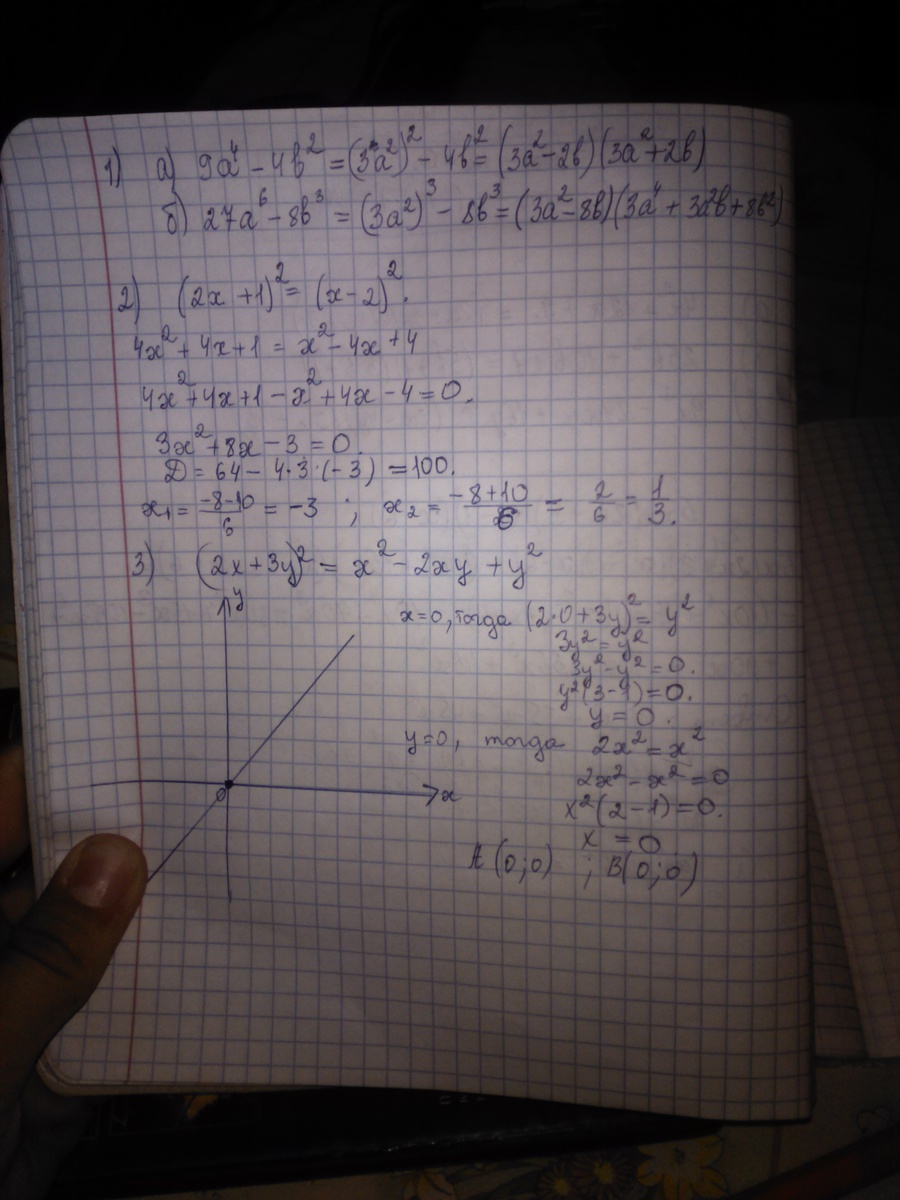 1) а) 9a⁴ - 4b² = (3a²)² - 4b² = (3a² - 2b)(3a² + 2b)
б) 27a⁶ - 8b³ = (3a²)³ - 8b³ = (3a² - 8b)(3a⁴ + 3a²b + 8b²)
2) (2x + 1)² = (x - 2)².
4x² + 4x + 1 = x² - 4x + 4
4x² + 4x + 1 - x² + 4x - 4 = 0.
3x² + 8x - 3 = 0.
D = 64 - 4·3·(-3) = 100.
x₁ = (-8-10)/6 = -3 ; x₂ = (-8+10)/6 = 2/6 = 1/3.
3) (2x + 3y)² = x² - 2xy + y²
y
x=0, тогда (2·0 + 3y)² = y²
3y² = y²
3y² - y² = 0.
y²(3-1) = 0.
y = 0.
y=0, тогда 2x² = x²
2x² - x² = 0
0 x
x²(2-1) = 0.
x = 0
A(0;0) ; B(0;0)